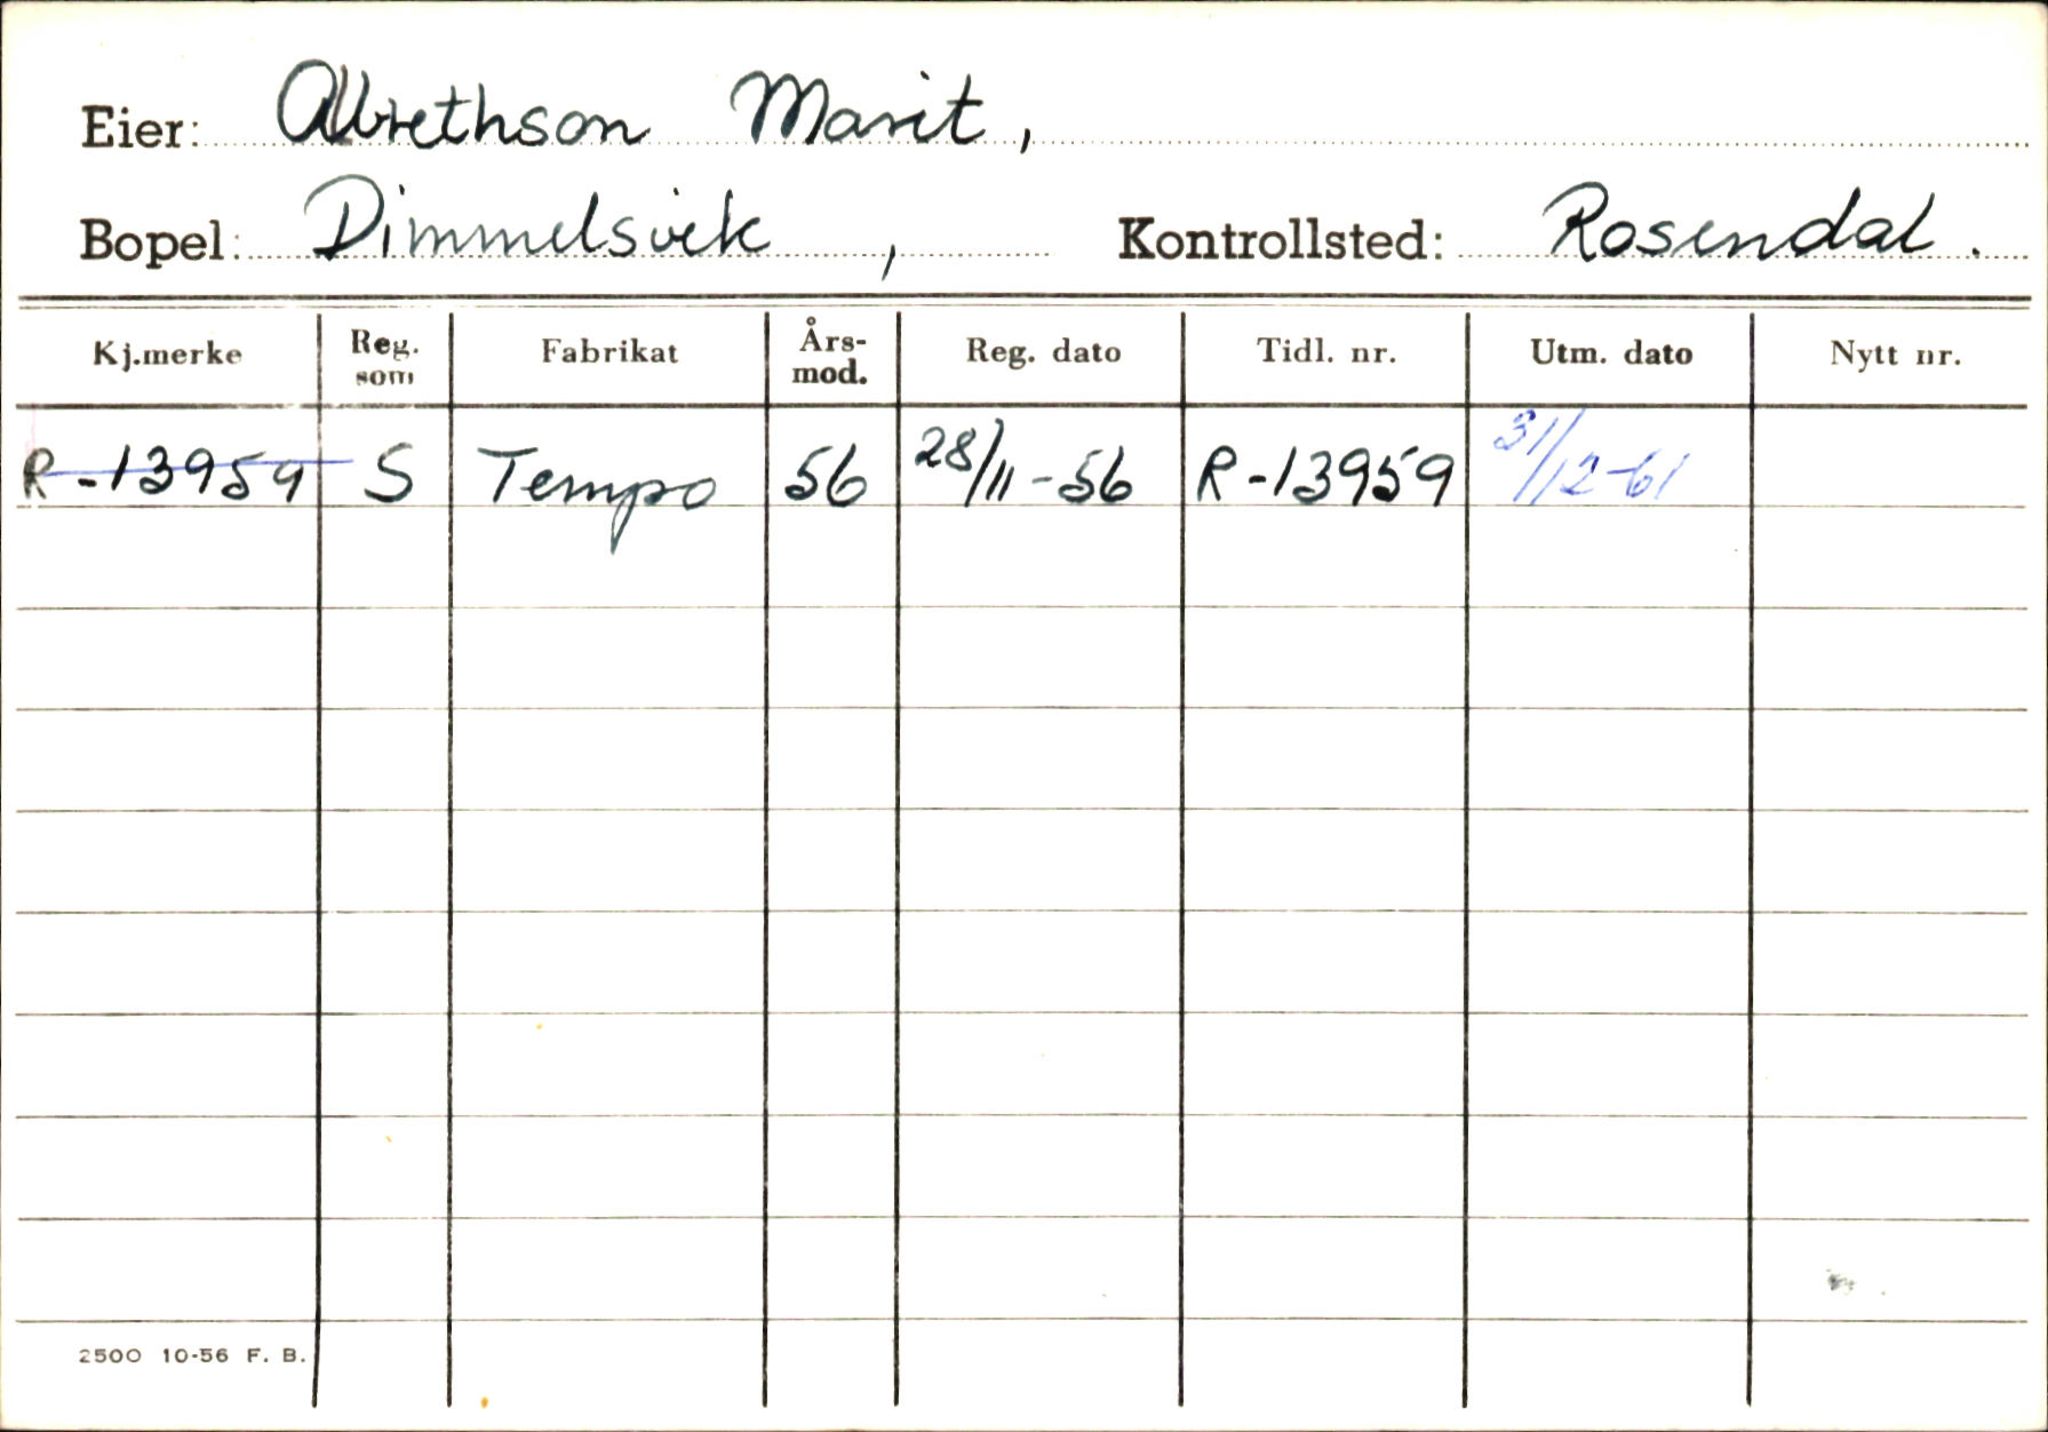 Eier: Albrethson Marit,
Bopel: Dimmelsvik, Kontrollsted: Rosendal.
Kj.merke Reg. som Fabrikat Års-mod. Reg. dato Tidl. nr. Utm. dato Nytt nr.
R-13959 S Tempo 56 28/11-56 R-13959 31/12-61
2500 10-56 F. B.